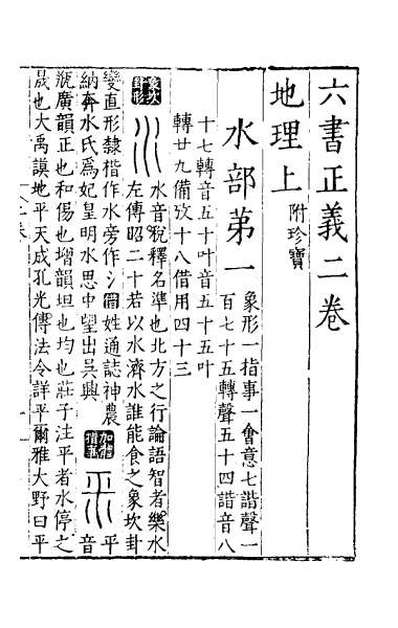 六書正義二卷
地理上 附珍寶
水部第一
象形一指事一會意七諧聲一
百七十五轉聲五十四諧音八
十七轉音五十叶音五十五叶
轉廿九備攷十八借用四十三
水音稅釋名準也北方之行論語智者樂水
左傳昭二十若以水濟水誰能食之象坎卦
變直形隸楷作水旁作氵借姓通誌神農
納奔水氏爲妃皇明水思中望出吳興
平音
瓶廣韻正也和也傷也增韻坦也均也莊子注平者水停之
晟也大禹謨地平天成孔光傳法令詳平爾雅大野曰平